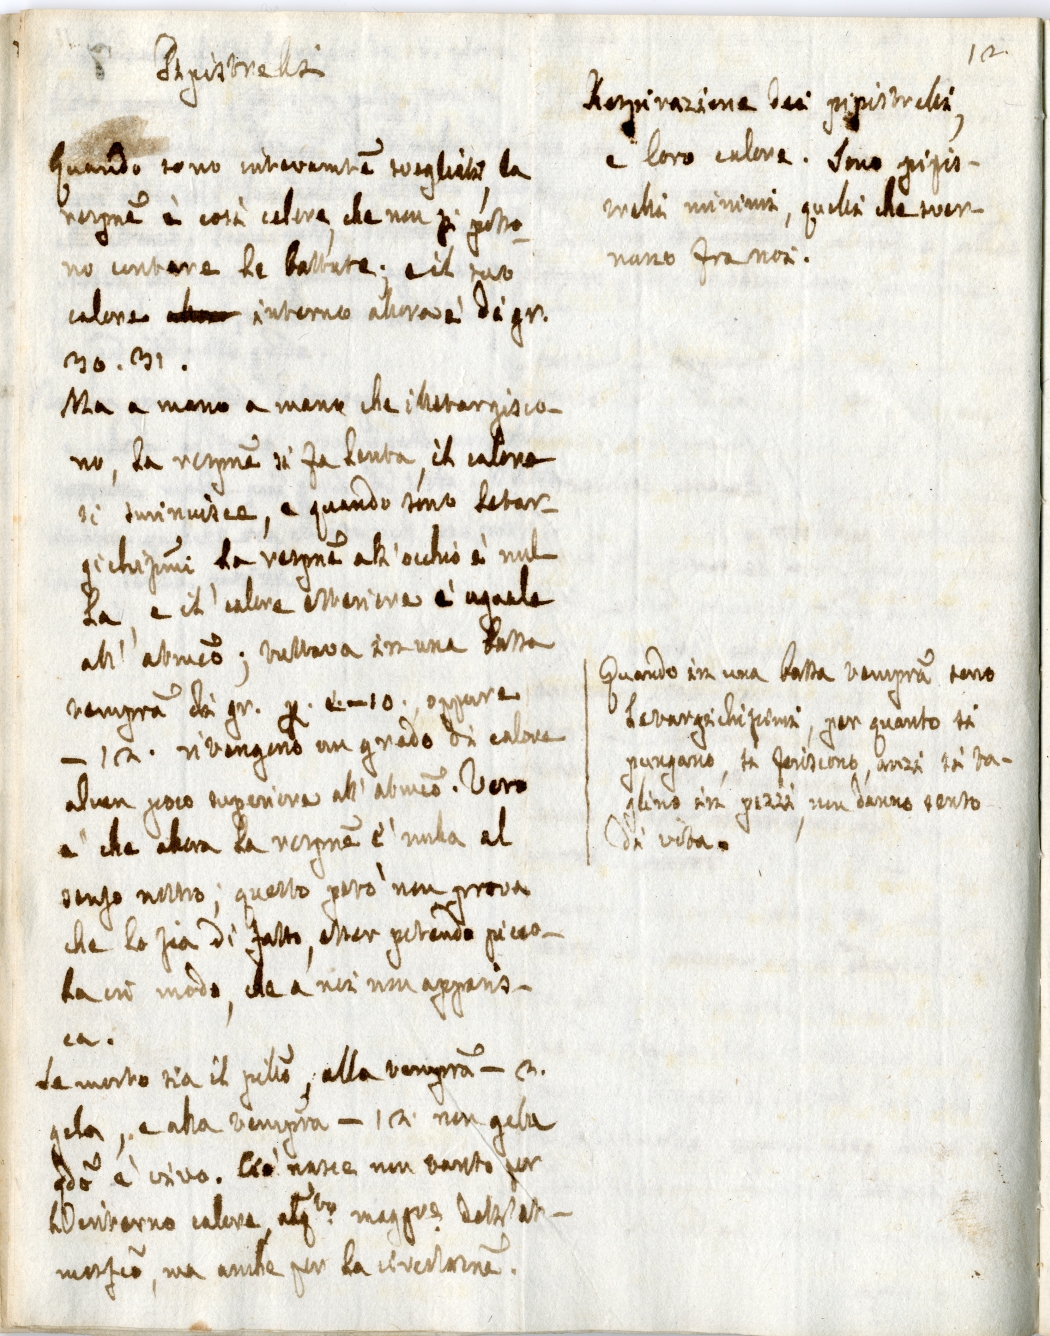 12
Pipistrelli
Quando sono interamte svegliati, la
respne è così celere, che non si posso-
no contare le battute; e il suo
calore interno allora è di gr.
30. 31.
Ma a mano a mano che illetargisco-
no, la respne si fa lenta, il calore
si diminuisce, e quando sono letar-
gichissmi la respne all'occhio è nul-
la, e il calore esteriore è uguale
all'atmco; tuttavia in una bassa
tempra di gr. – 10. oppure
– 12. ritengono un grado di calore
alcun poco superiore all'atmco. Vero
è che allora la respne è nulla al
senso nostro; questo però non prova
che lo sia di fatto, esser potendo picco-
la in modo, che a noi non apparis-
ca.
Se morto sia il pillo, alla tempra – 2.
gela, e alla tempra – 12. non gela
qdo è vivo. Ciò nasce non tanto per
l'interno calore, alqto maggre dell'at-
mosfco, ma anche per la circolazne.
Respirazione dei pipistrelli,
e loro calore. Sono pipis-
trelli minimi, quelli che sver-
nano fra noi.
Quando in una bassa tempra sono
letargichissimi, per quanto si
pungano, si feriscono, anzi si ta-
glino in pezzi, non danno sento
di vita.